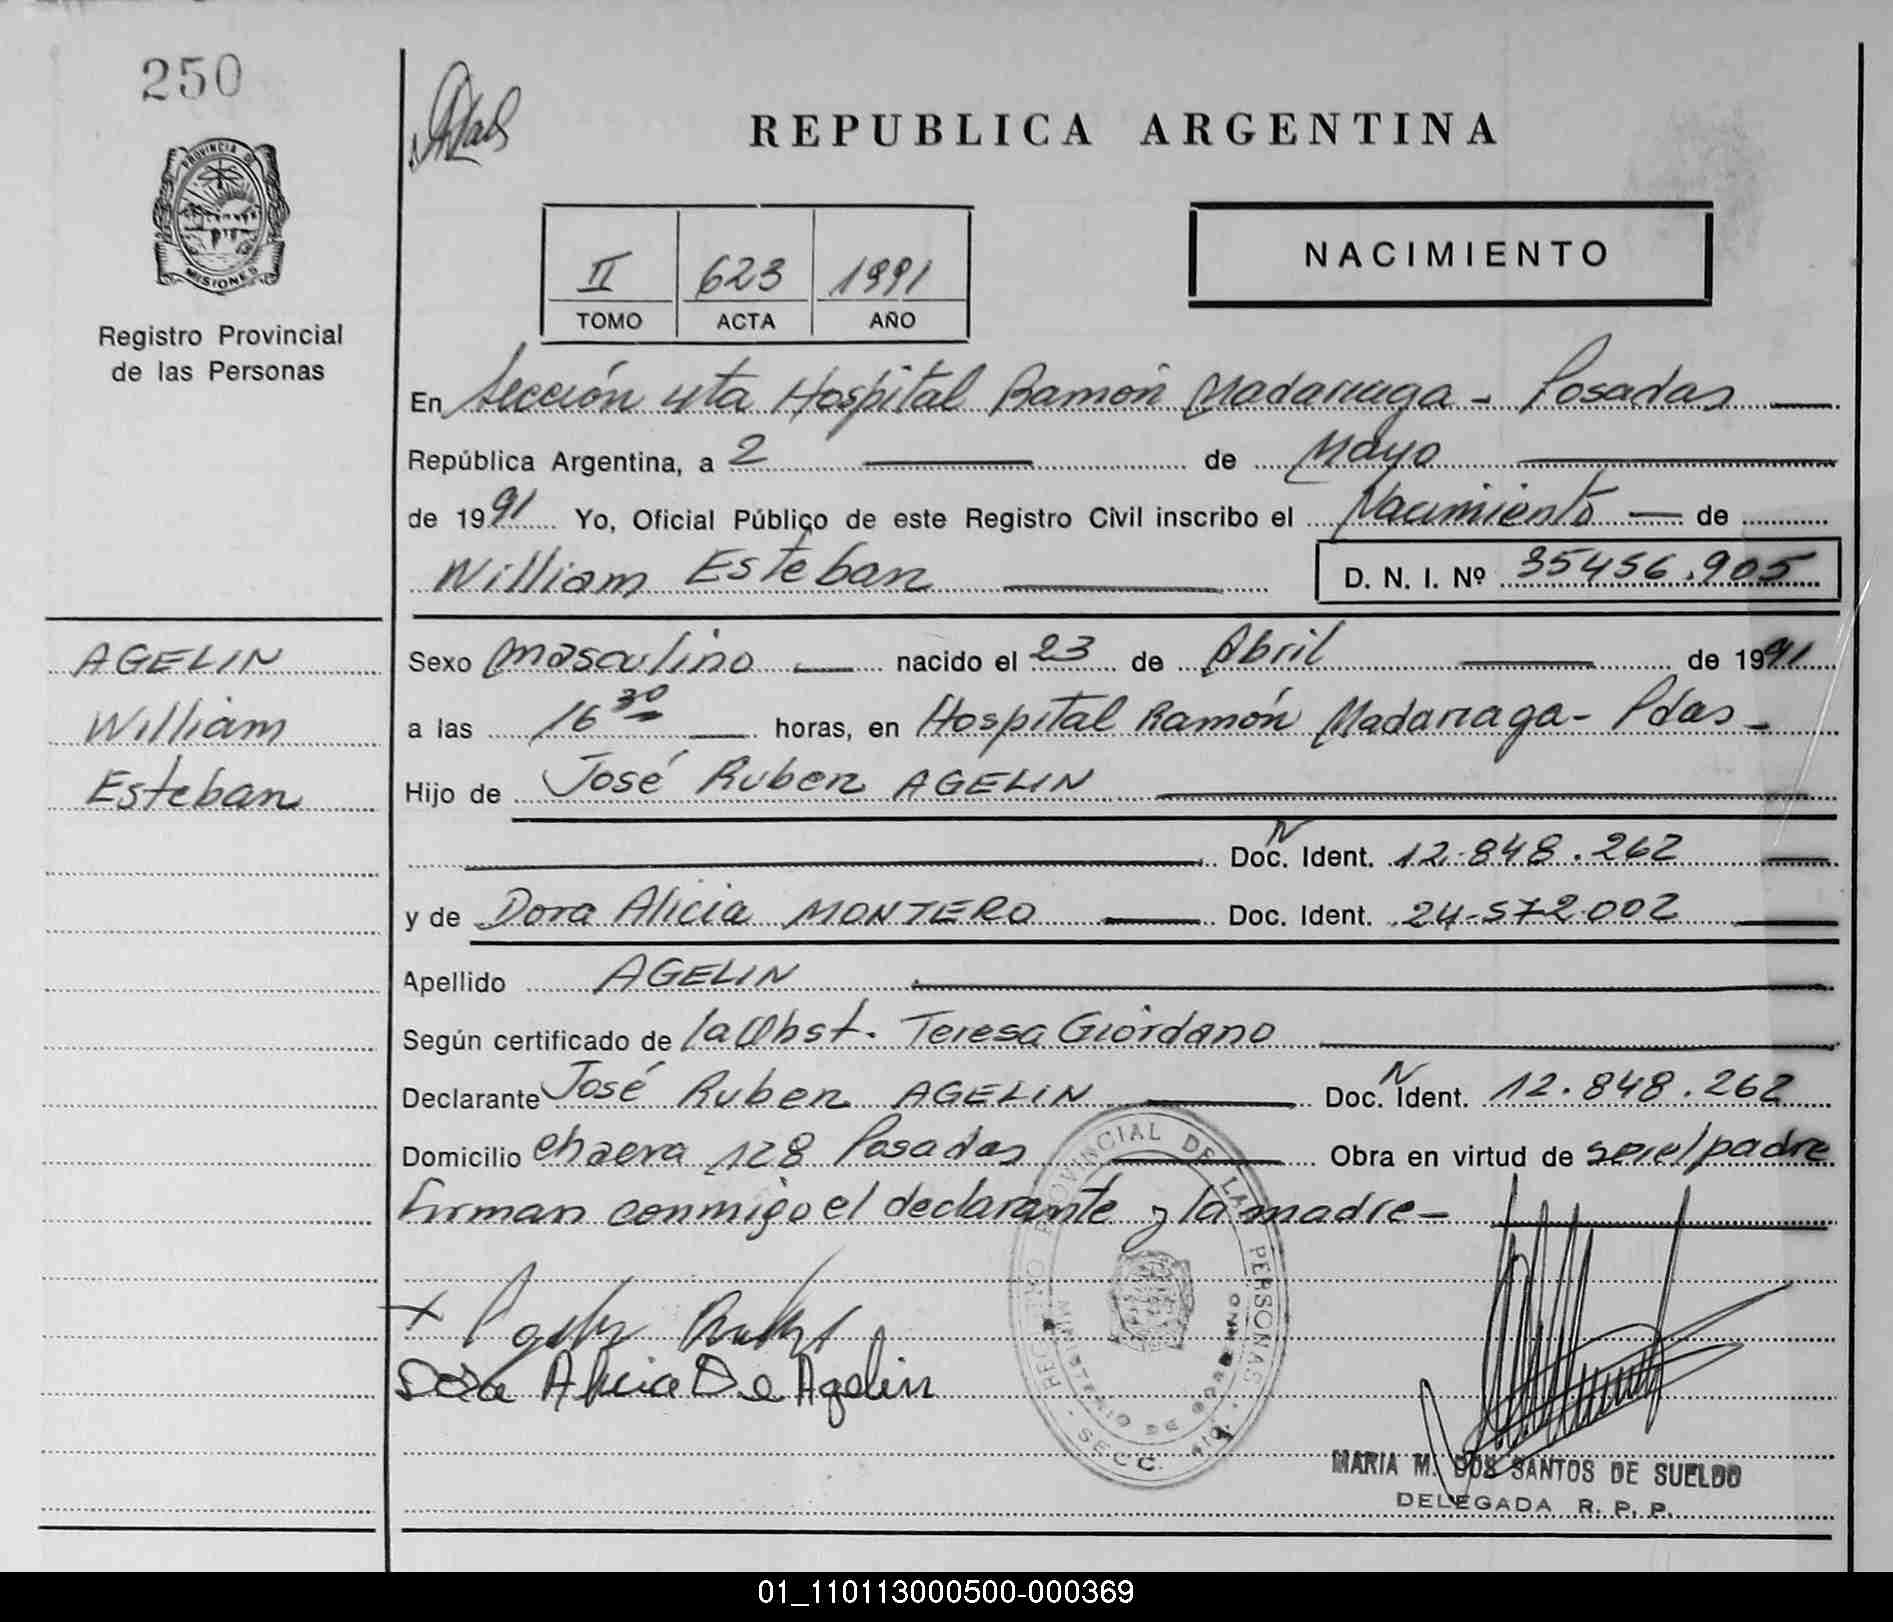 250
PROVINCIA DE
MISIONES
Registro Provincial
de las Personas
REPUBLICA ARGENTINA
II 623 1991
TOMO ACTA AÑO
NACIMIENTO
En Sección 4ta Hospital Ramón Madariaga - Posadas
República Argentina, a 2 de Mayo
de 1991 Yo, Oficial Público de este Registro Civil inscribo el Nacimiento de
William Esteban D. N. I. Nº 35456.905
AGELIN
William
Esteban
Sexo masculino nacido el 23 de Abril de 1991
a las 16 30 horas, en Hospital Ramón Madariaga - Pdas -
Hijo de José Ruben AGELIN
N
Doc. Ident. 12.848.262
y de Dora Alicia MONTERO Doc. Ident. 24.572.002
Apellido AGELIN
Según certificado de la Obst. Teresa Giordano
N
Declarante José Ruben AGELIN Doc. Ident. 12.848.262
Domicilio chacra 128 Posadas Obra en virtud de ser el padre
Firman conmigo el declarante y la madre -
REGISTRO PROVINCIAL DE LAS PERSONAS
MINISTERIO DE GOBIERNO
- SECC. 4ta -
Dora Alicia De Agelin
MARIA M. DOS SANTOS DE SUELDO
DELEGADA R. P. P.
01_110113000500-000369